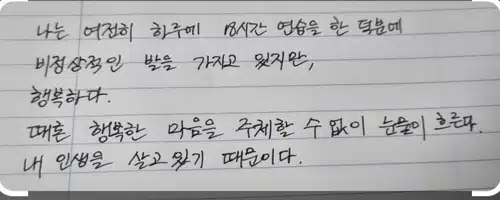 나는 여전히 하루에 18시간 연습을 한 덕분에
비정상적인 발을 가지고 있지만,
행복하다.
때론 행복한 마음을 주체할 수 없이 눈물이 흐른다.
내 인생을 살고 있기 때문이다.